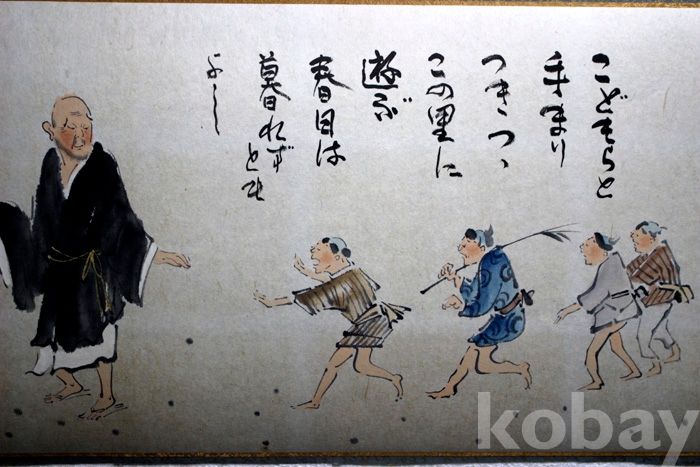 こどもらと
手まり
つきつゝ
この里に
遊ぶ
春日は
暮れず
とも
よし
kobay